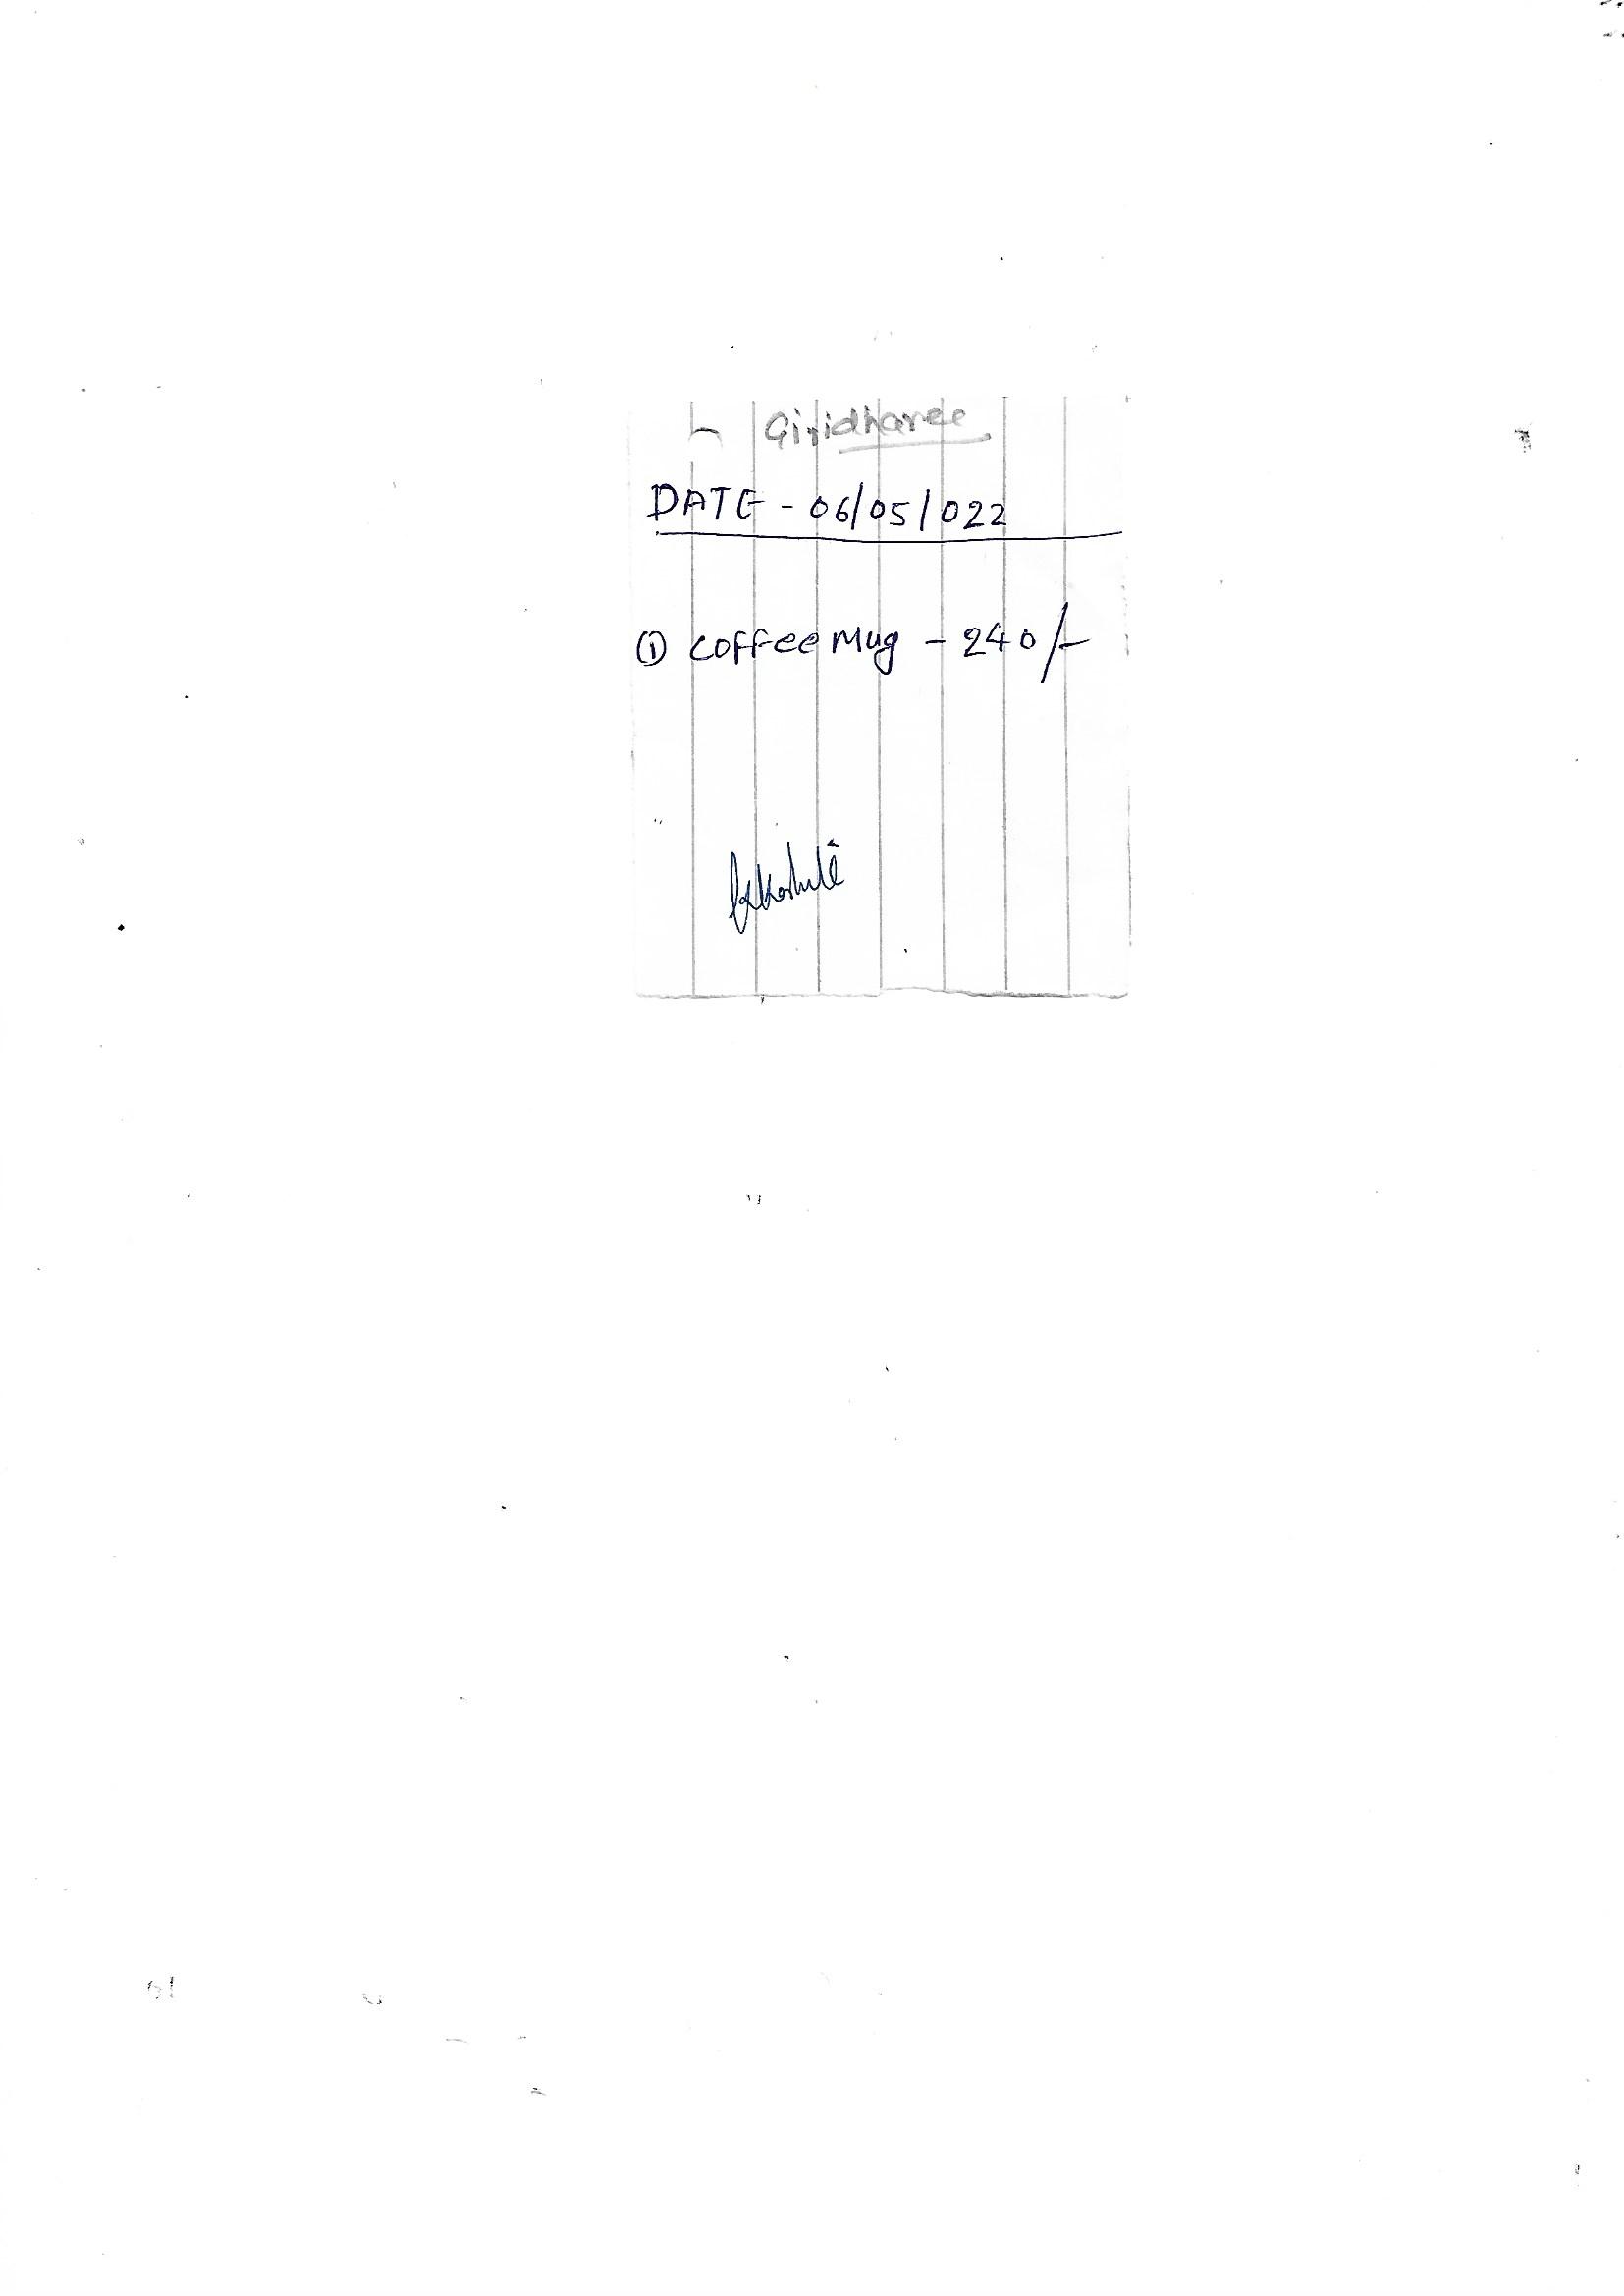 Giridharee
DATE - 06/05/022
① coffee Mug - 240/-